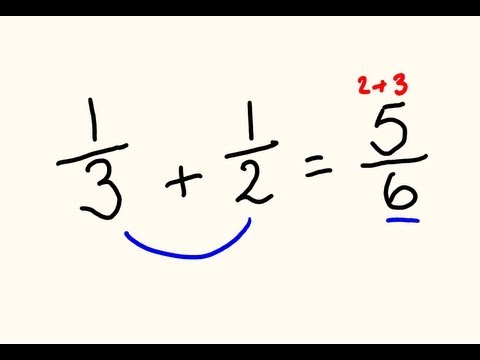 2+3
1/3 + 1/2 = 5/6